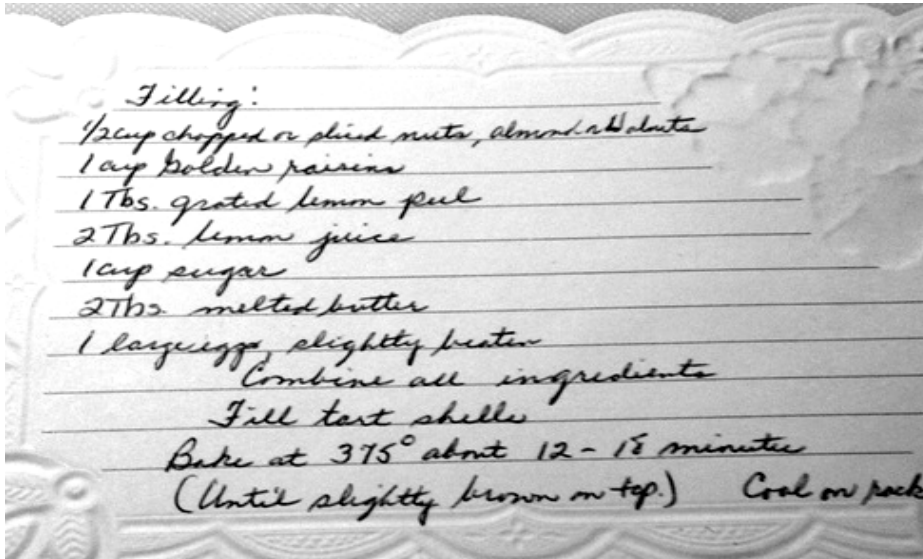 Filling:
1/2 cup chopped or sliced nuts, almond or Walnuts
1 cup Golden raisins
1 Tbs. grated lemon peel
2 Tbs. lemon juice
1 cup sugar
2 Tbs. melted butter
1 large egg, slightly beaten
Combine all ingredients
Fill tart shells
Bake at 375° about 12 - 18 minutes
(Until slightly brown on top.) Cool on rack